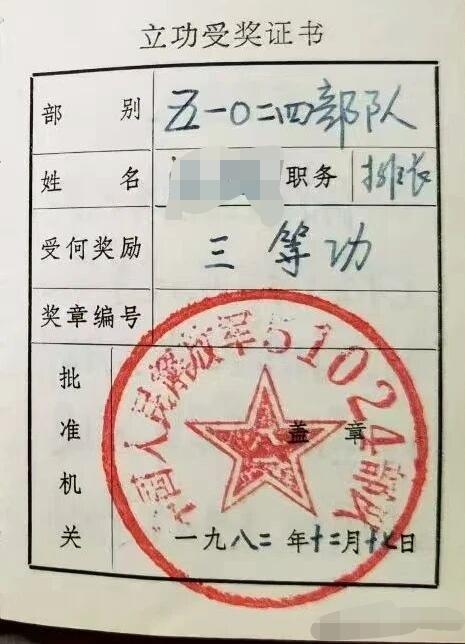 立功受奖证书
部别 五一〇二四部队
姓名 职务 排长
受何奖励 三等功
奖章编号
批准机关
中国人民解放军51024部队
盖章
一九八二年十二月十七日